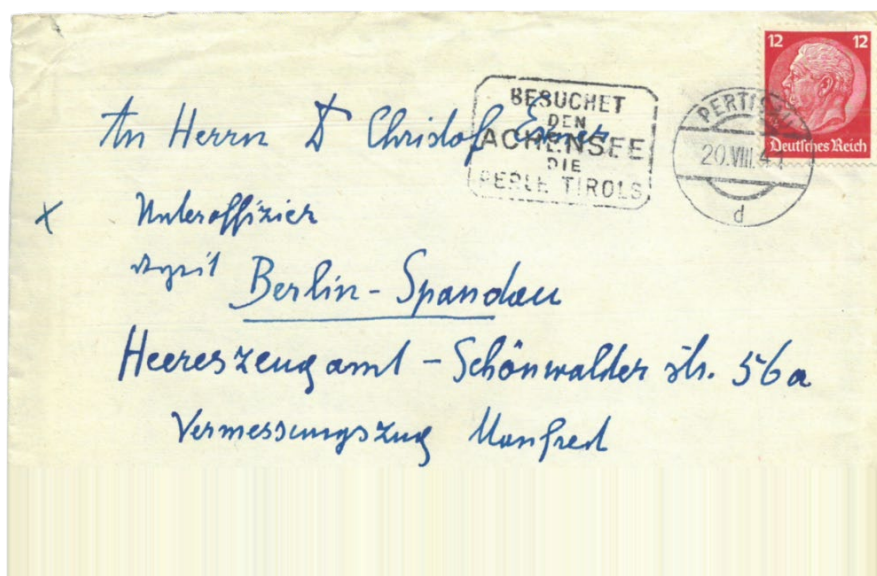 12 12
Deutsches Reich
BESUCHET
DEN
ACHENSEE
DIE
PERLE TIROLS
PERTISAU
20.VIII.4
d
An Herrn D Christof
x Unteroffizier
Berlin - Spandau
Heereszeugamt - Schönwalder str. 56a
Vermessungszug Manfred